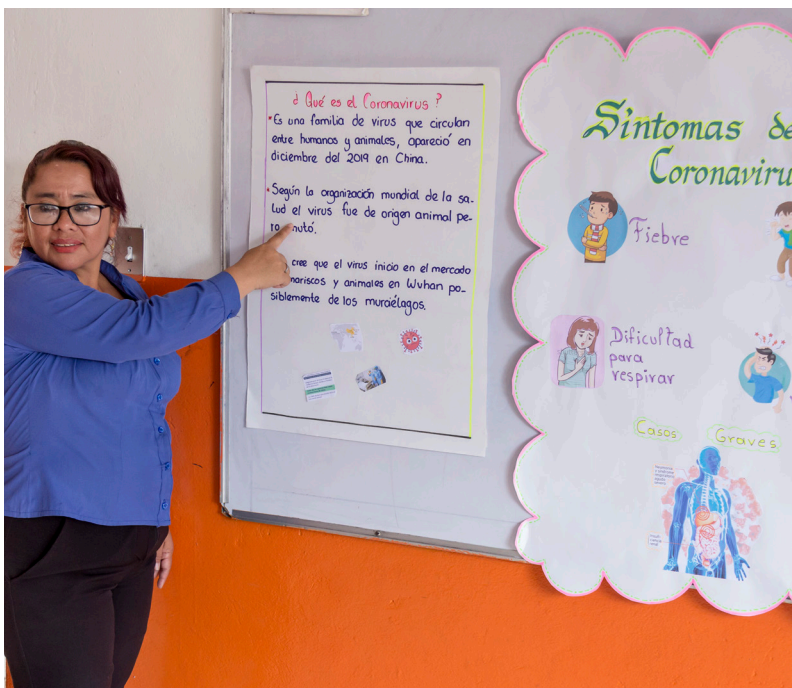 ¿ Qué es el Coronavirus ?
• Es una familia de virus que circulan
entre humanos y animales, apareció en
diciembre del 2019 en China.
• Según la organización mundial de la sa-
lud el virus fue de origen animal pe-
ro mutó.
cree que el virus inicio en el mercado
mariscos y animales en Wuhan po-
siblemente de los murciélagos.
Síntomas de
Coronaviru
Fiebre
Dificultad
para
respirar
Casos Graves